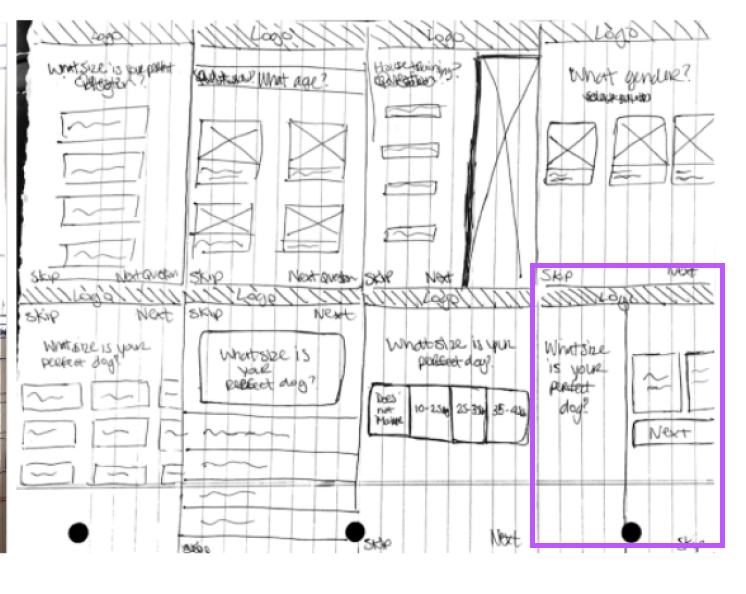 Logo
What size is your perfect
?
Skip
Next Question
Logo
What age?
Skip
Next Question
Logo
House training?
Skip
Next
Logo
What gender?
Skip
Next
Logo
Skip
Next
What size is your
perfect dog?
Logo
Skip
Next
What size is
your
perfect dog?
Logo
What size is your
perfect dog?
Does
not
Matter
10-25
25-35
35-45
Skip
Next
Logo
What size
is your
perfect
dog?
Next
Skip